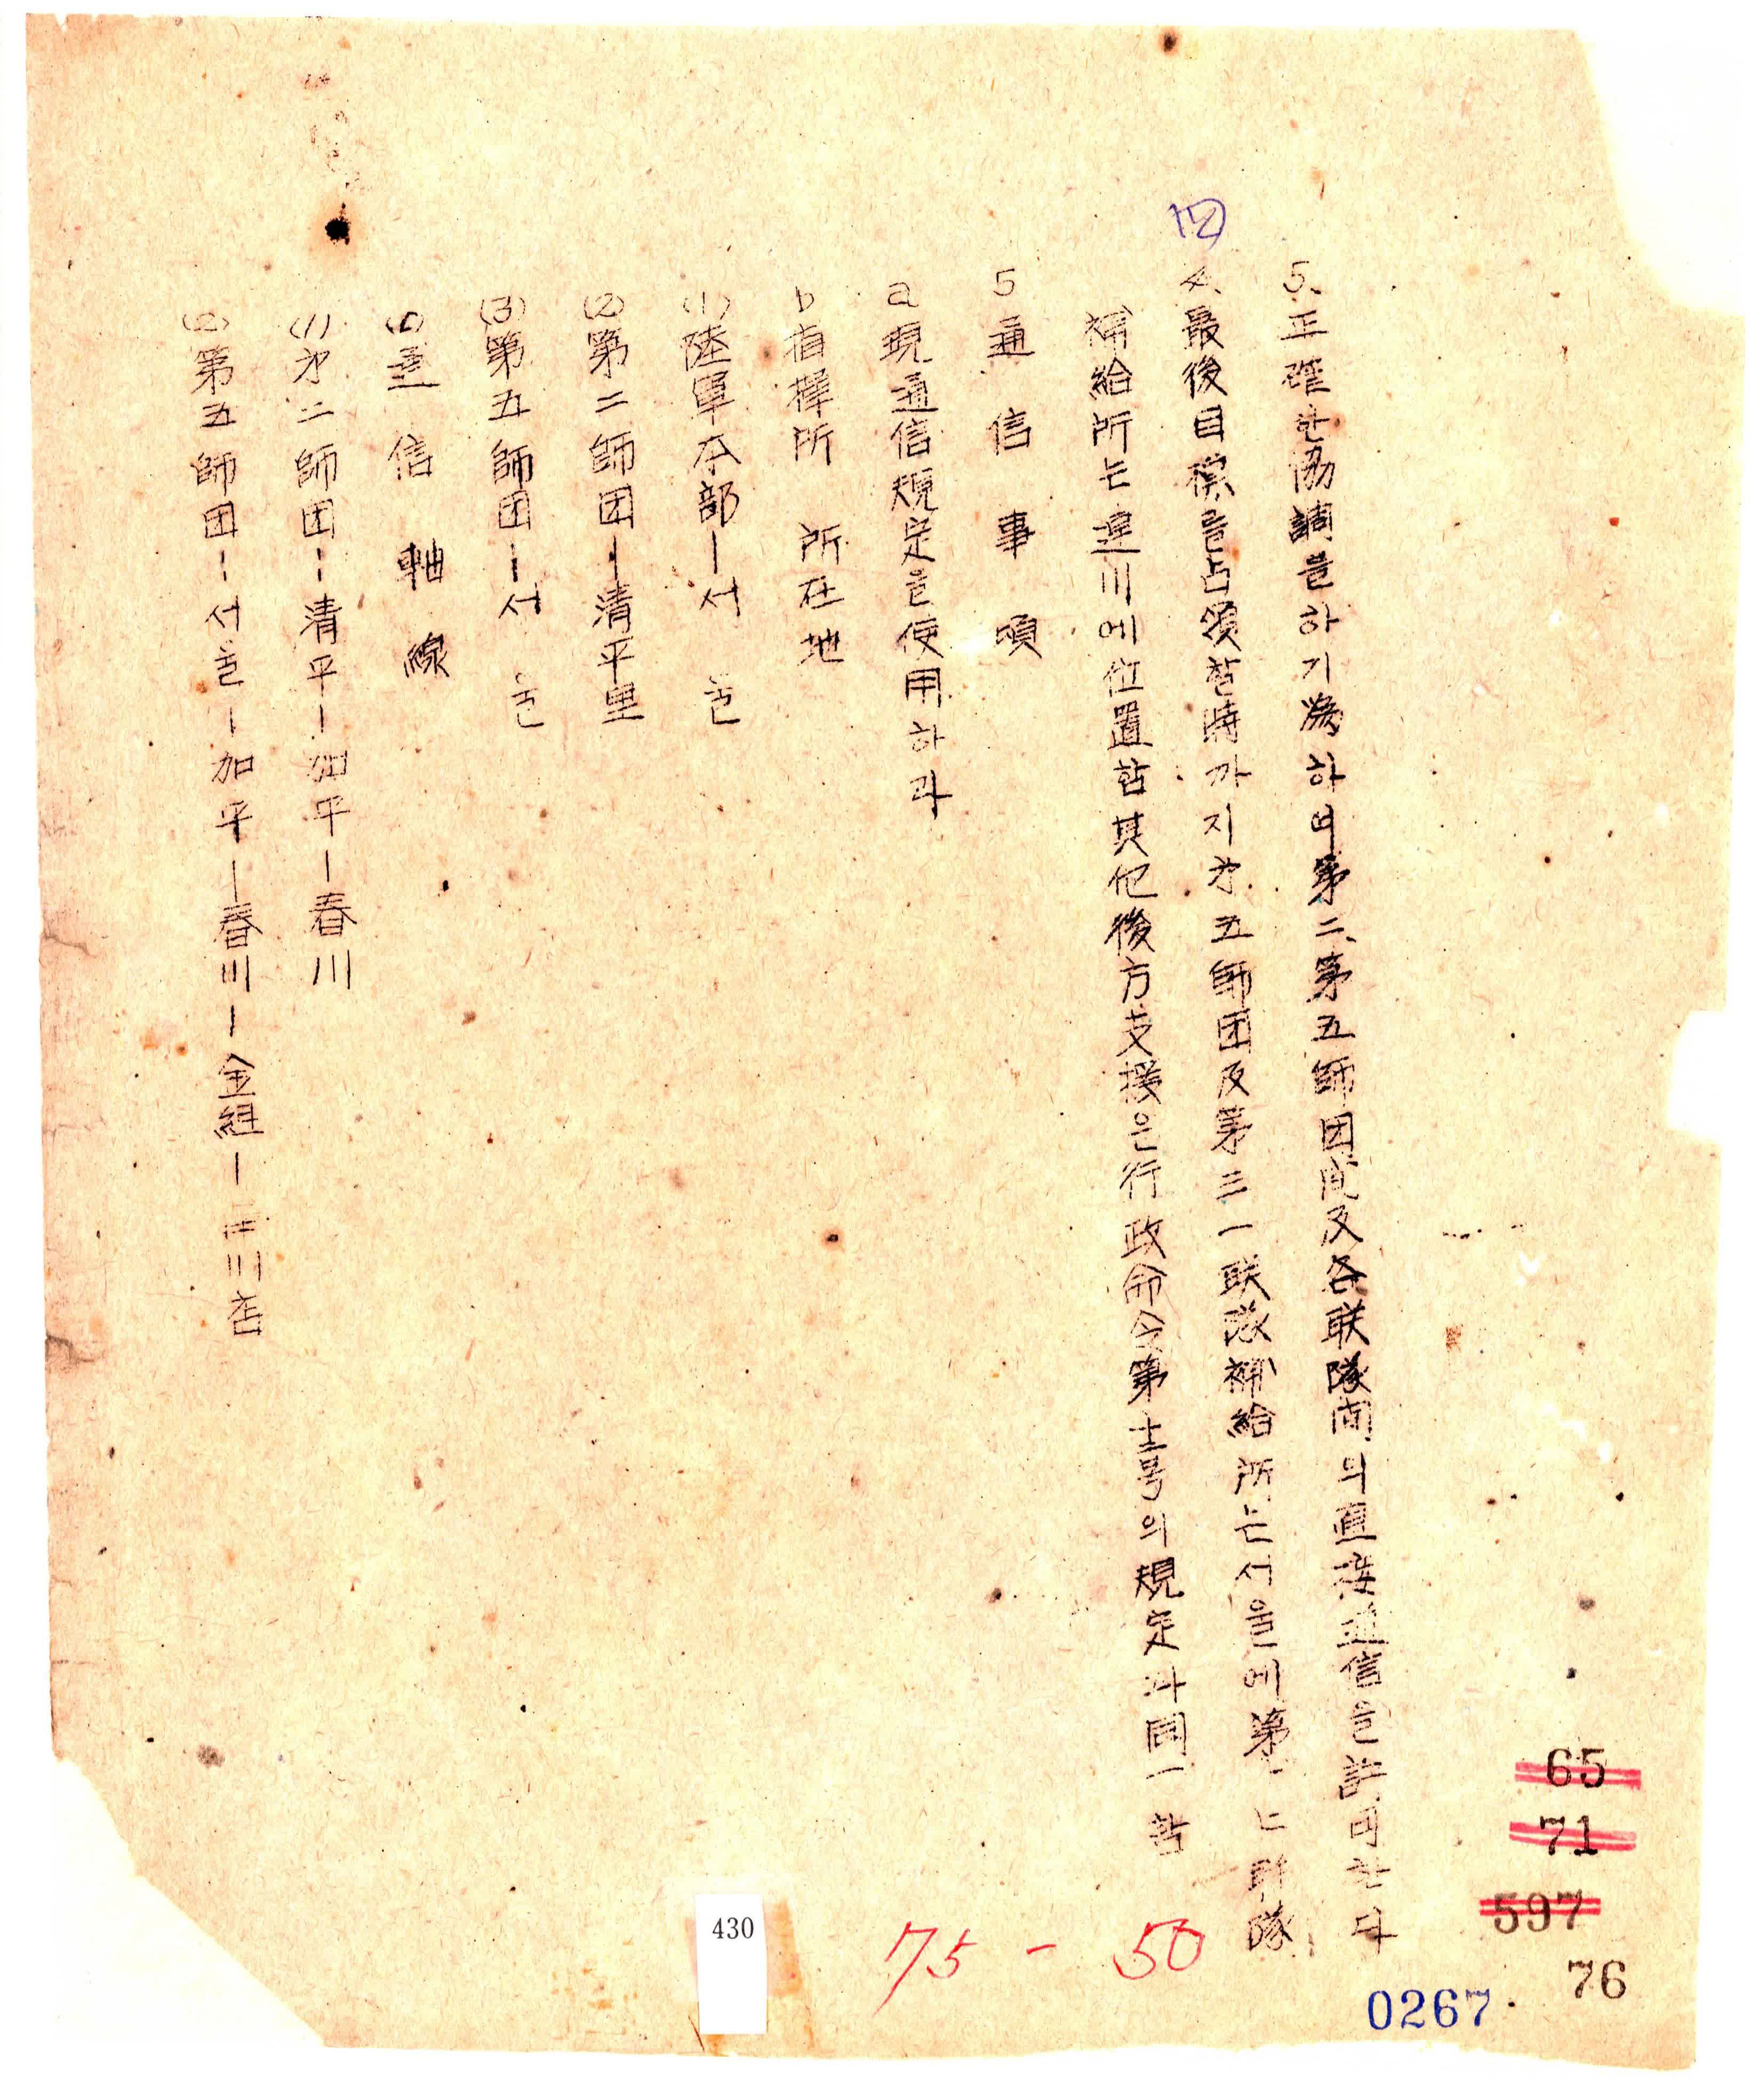 5. 正確한 協調를 하기 爲하여 第二、第五師団間 及 各 联隊間의 直接通信을 許可한다
四
4. 最後目標를 占領할 時까지 才五師団 及 第三一联隊 補給所는 서울에 第 联隊
補給所는 連川에 位置함 其他 後方支援은 行政命令 第 号의 規定과 同一함
5 通信事項
a 現通信規定을 使用하라
b 指揮所 所在地
(1) 陸軍本部 — 서울
(2) 第二師団 — 清平里
(3) 第五師団 — 서울
信軸線
(1) 才二師団 -- 清平 — 加平 — 春川
(2) 第五師団 -- 서울 — 加平 — 春川 — 金組 — 川 
65
71
597
76
0267
75 - 50
430